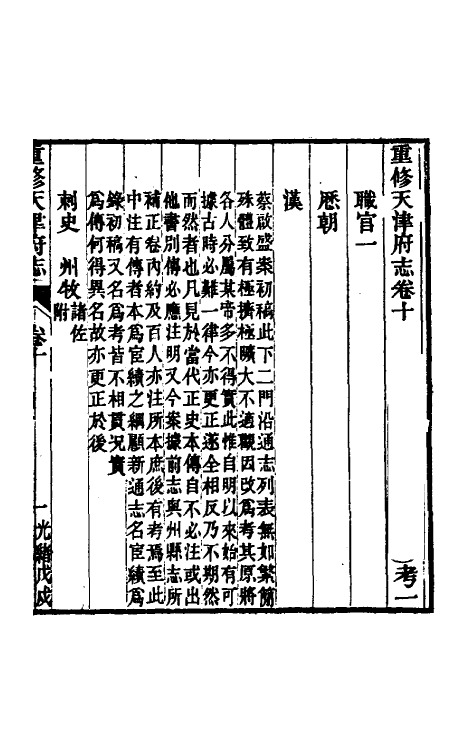 重修天津府志卷十
考一
職官一
歷朝
漢
蔡啟盛案初稿此下二門沿通志列表無如繁簡
殊體致有極擠極曠大不適觀因改爲考其原將
各人分屬某帝多不得實此惟自明以來始有可
據古時必難一律今亦更正遂全相反乃不期然
而然者也凡見於當代正史本傳自不必注或出
他書別傳必應注明又今案據前志與州縣志所
補正卷內約及百人亦注所本庶後有考焉至此
中注有傳者本爲宦績之綱顧新通志名宦績爲
錄初稿又名爲考皆不相貫況實
爲傳何得異名故亦更正於後
刺史 州牧諸佐附
重修天津府志
卷十
一
光緒戊戌